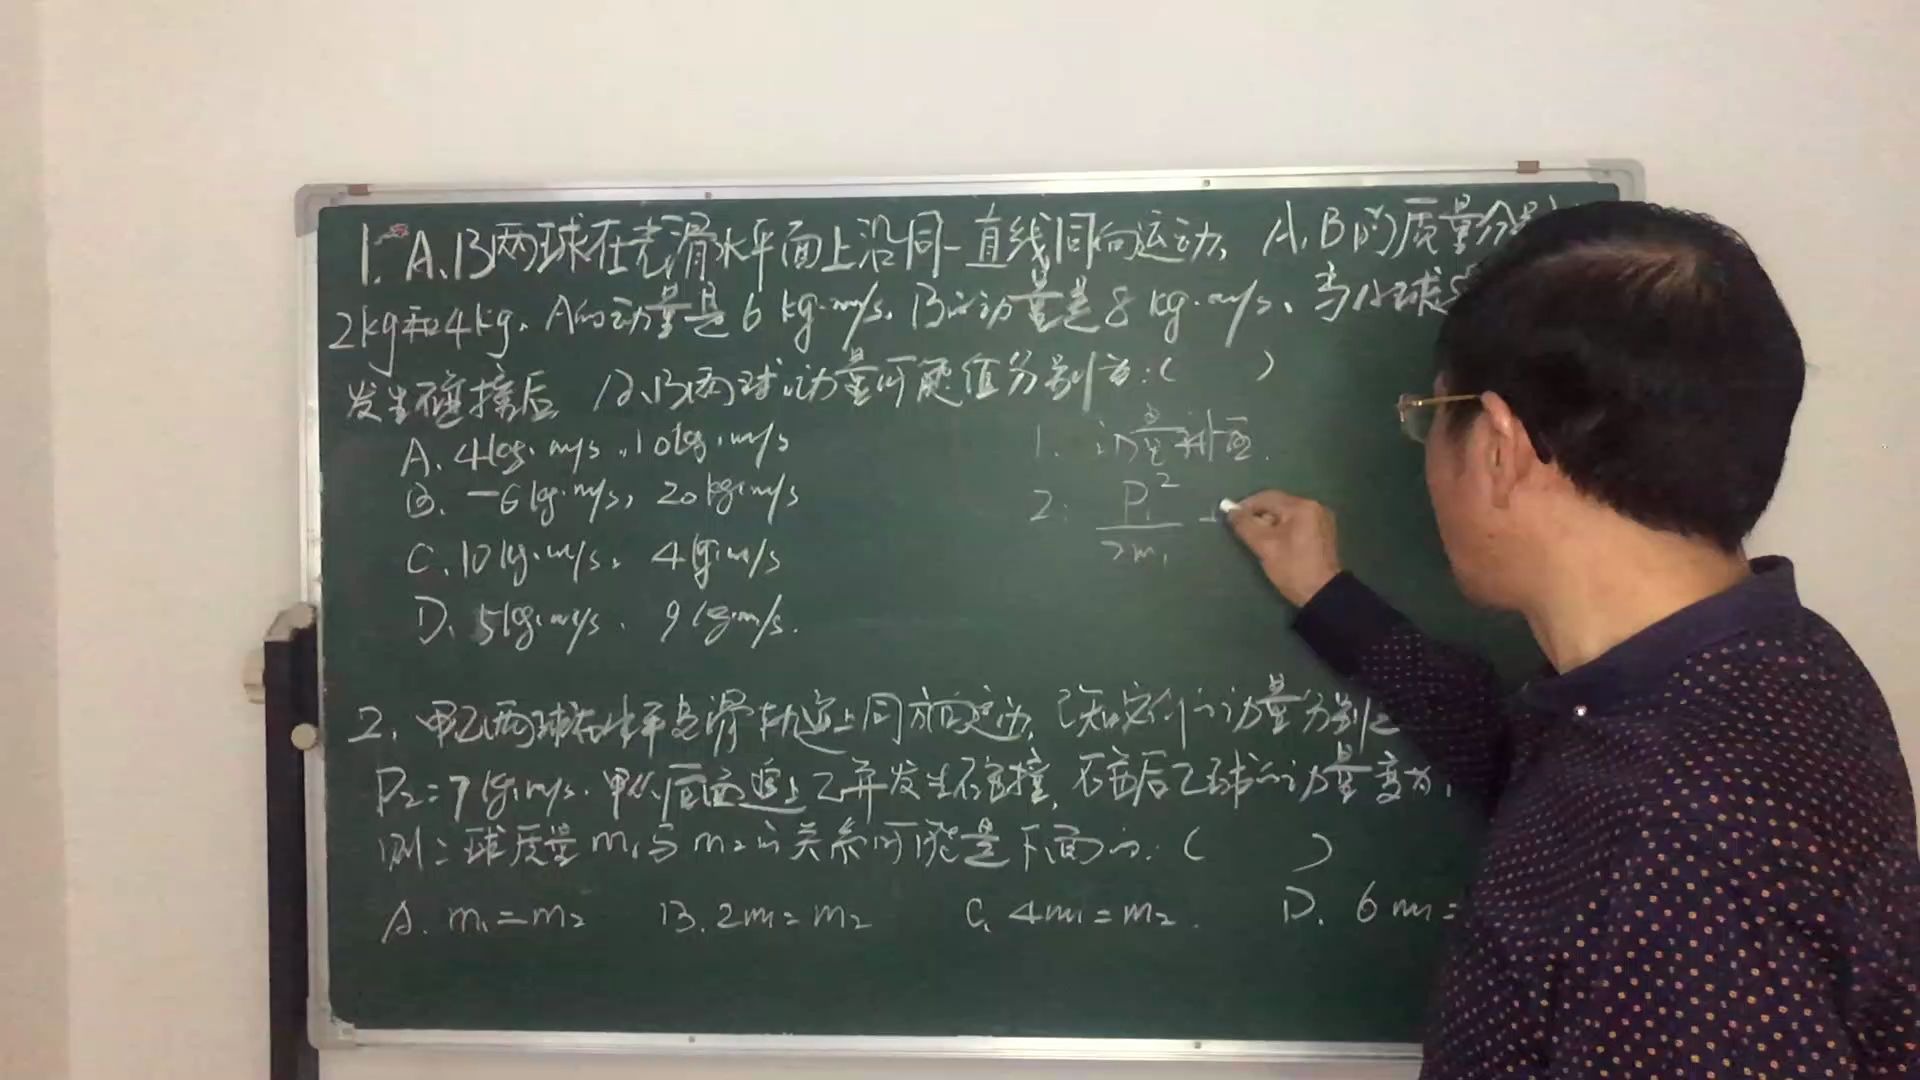 1. A、B两球在光滑水平面上沿同一直线同向运动, A、B的质量分别
2kg和4kg、A的动量是6 kg·m/s. B的动量是8 kg·m/s、当A球
发生碰撞后 A、B两球动量可能值分别为:( )
A. 4kg·m/s, 10kg·m/s
B. -6kg·m/s, 20kg·m/s
C. 10kg·m/s, 4kg·m/s
D. 5kg·m/s、 9kg·m/s.
1.
2. P₁²/2m₁
2. 甲乙两球在水平光滑轨道上同方向运动, 已知它们的动量分别是
P₂=7kg·m/s. 甲从后面追上乙并发生碰撞, 碰后乙球的动量变为
则二球质量m₁与m₂的关系可能是下面的:( )
A. m₁=m₂ B. 2m₁=m₂ C. 4m₁=m₂. D. 6m₁=